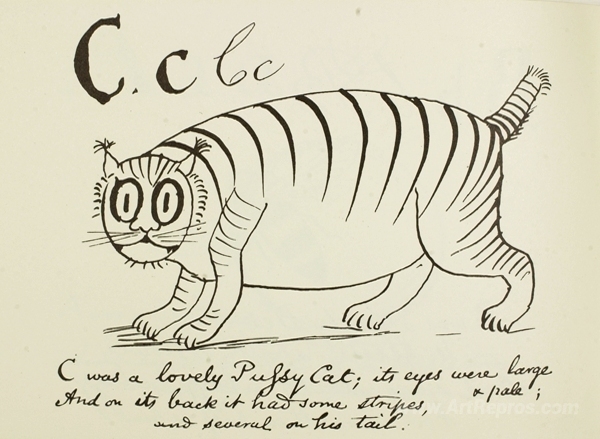 C. c C c
C was a lovely Pussy Cat; its eyes were large
& pale;
And on its back it had some stripes,
and several on his tail.
www.ArtRepros.com